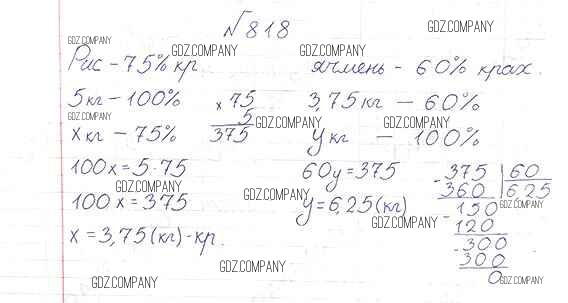 №818
GDZ.COMPANY
GDZ.COMPANY
GDZ.COMPANY
GDZ.COMPANY
Рис - 75% кр
ячмень - 60% крах.
5 кг - 100%
× 75
5
375
3,75 кг - 60%
GDZ.COMPANY
GDZ.COMPANY
GDZ.COMPANY
x кг - 75%
y кг - 100%
100x = 5·75
60y = 375
- 375 | 60
360 | 6,25
- 150
120
- 300
300
0
GDZ.COMPANY
GDZ.COMPANY
GDZ.COMPANY
100x = 375
y = 6,25 (кг)
GDZ.COMPANY
x = 3,75 (кг) - кр.
GDZ.COMPANY
GDZ.COMPANY
GDZ.COMPANY